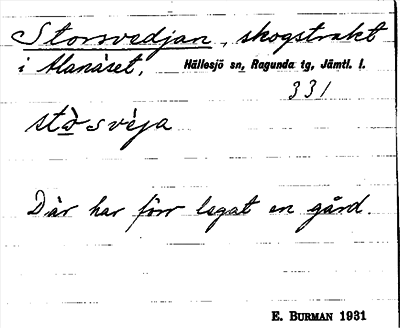 Storsvedjan, skogstrakt
i Alanäset, Hällesjö sn, Ragunda tg, Jämtl. l.
331
stò̠svèja
Där har förr legat en gård.
E. BURMAN 1931